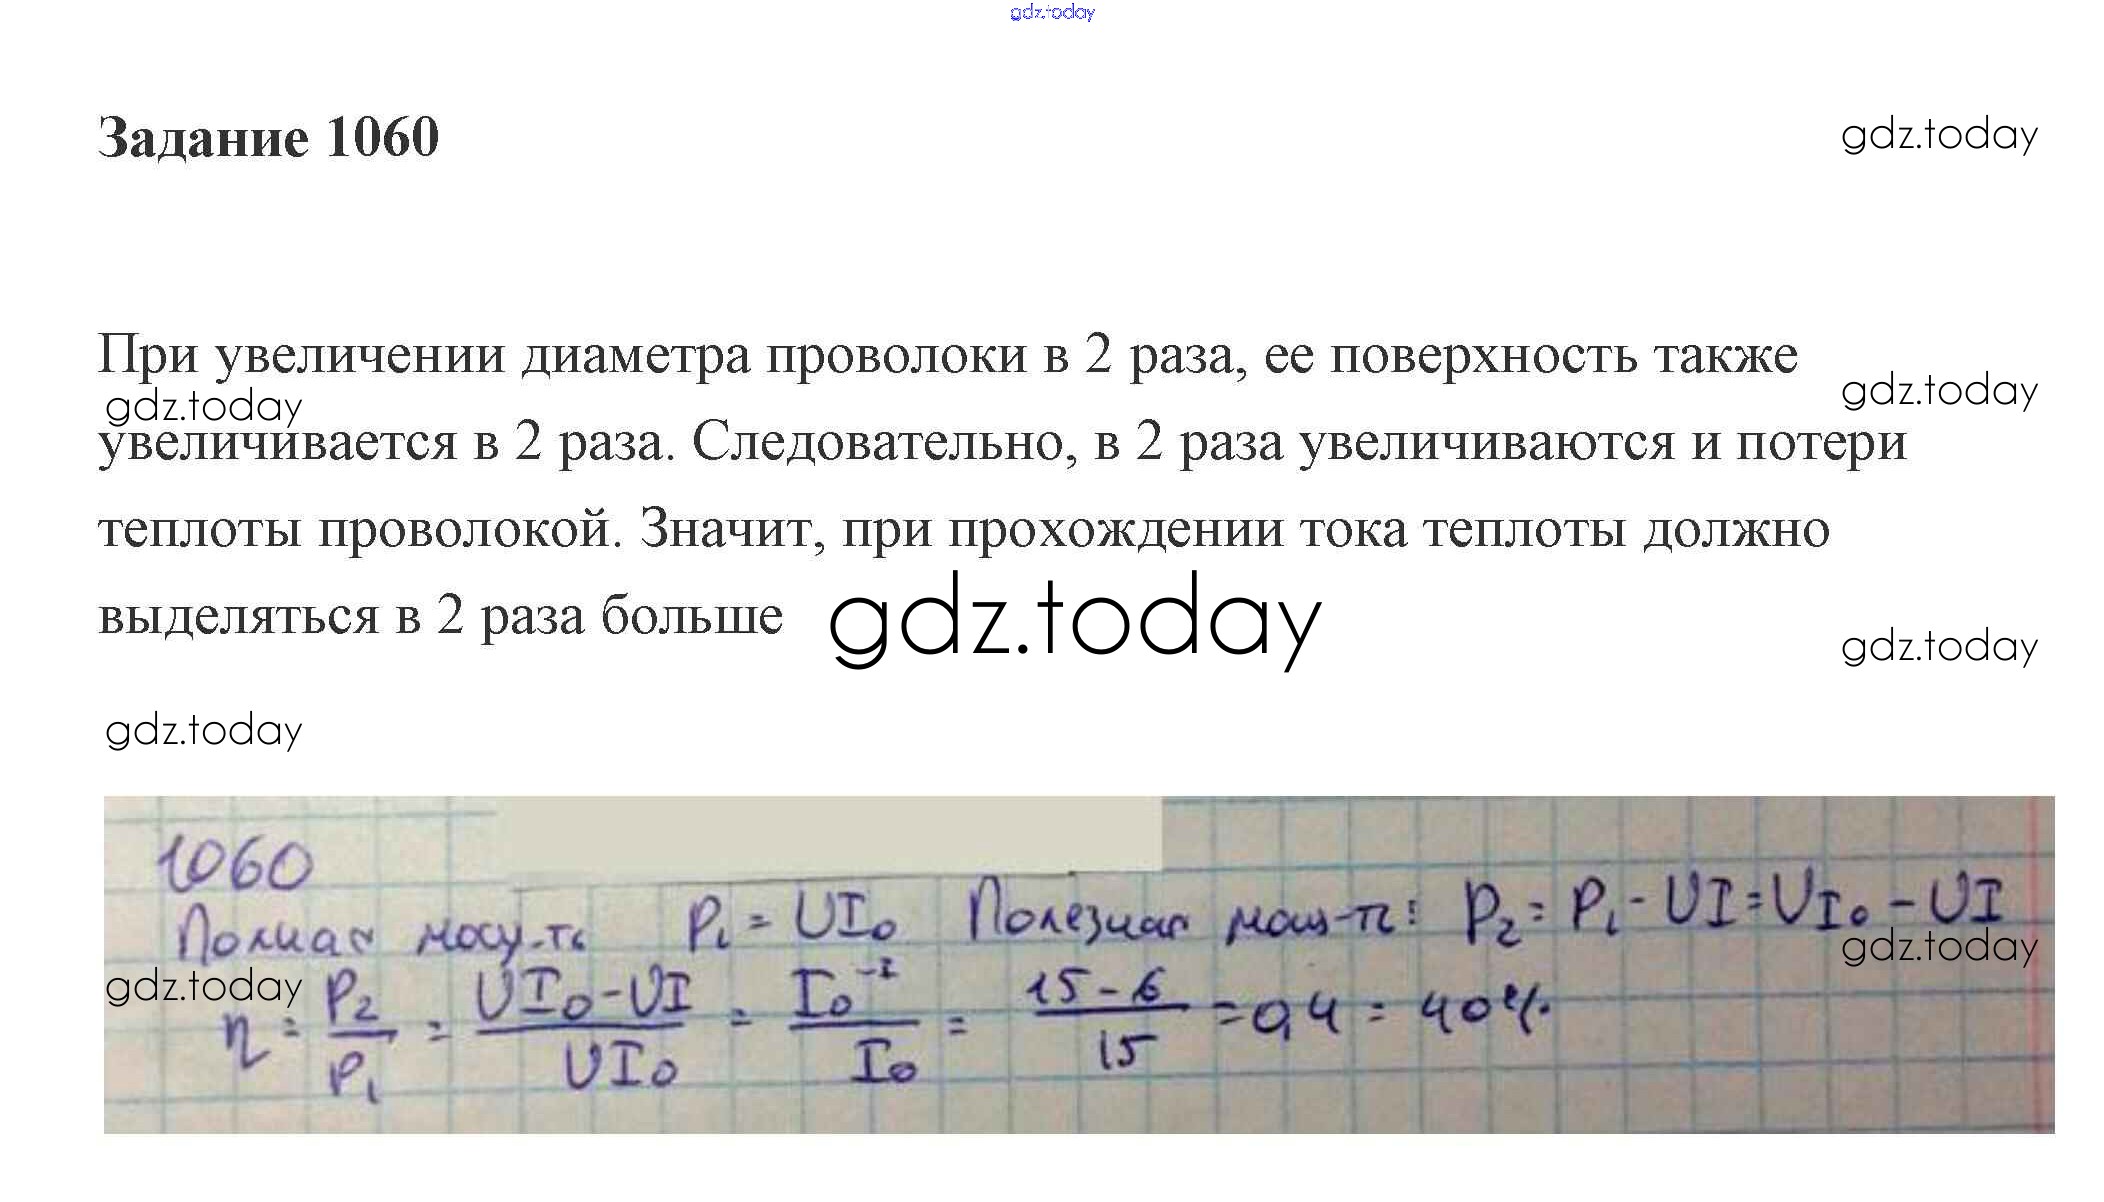 gdz.today
Задание 1060
gdz.today
При увеличении диаметра проволоки в 2 раза, ее поверхность также
gdz.today
gdz.today
увеличивается в 2 раза. Следовательно, в 2 раза увеличиваются и потери
теплоты проволокой. Значит, при прохождении тока теплоты должно
выделяться в 2 раза больше
gdz.today
gdz.today
gdz.today
1060
Полная мощ-ть P₁ = UI₀ Полезная мощ-ть: P₂ = P₁ - UI = UI₀ - UI
gdz.today
gdz.today
η = P₂/P₁ = (UI₀ - UI)/UI₀ = (I₀ - I)/I₀ = (15 - 6)/15 = 0,4 = 40%